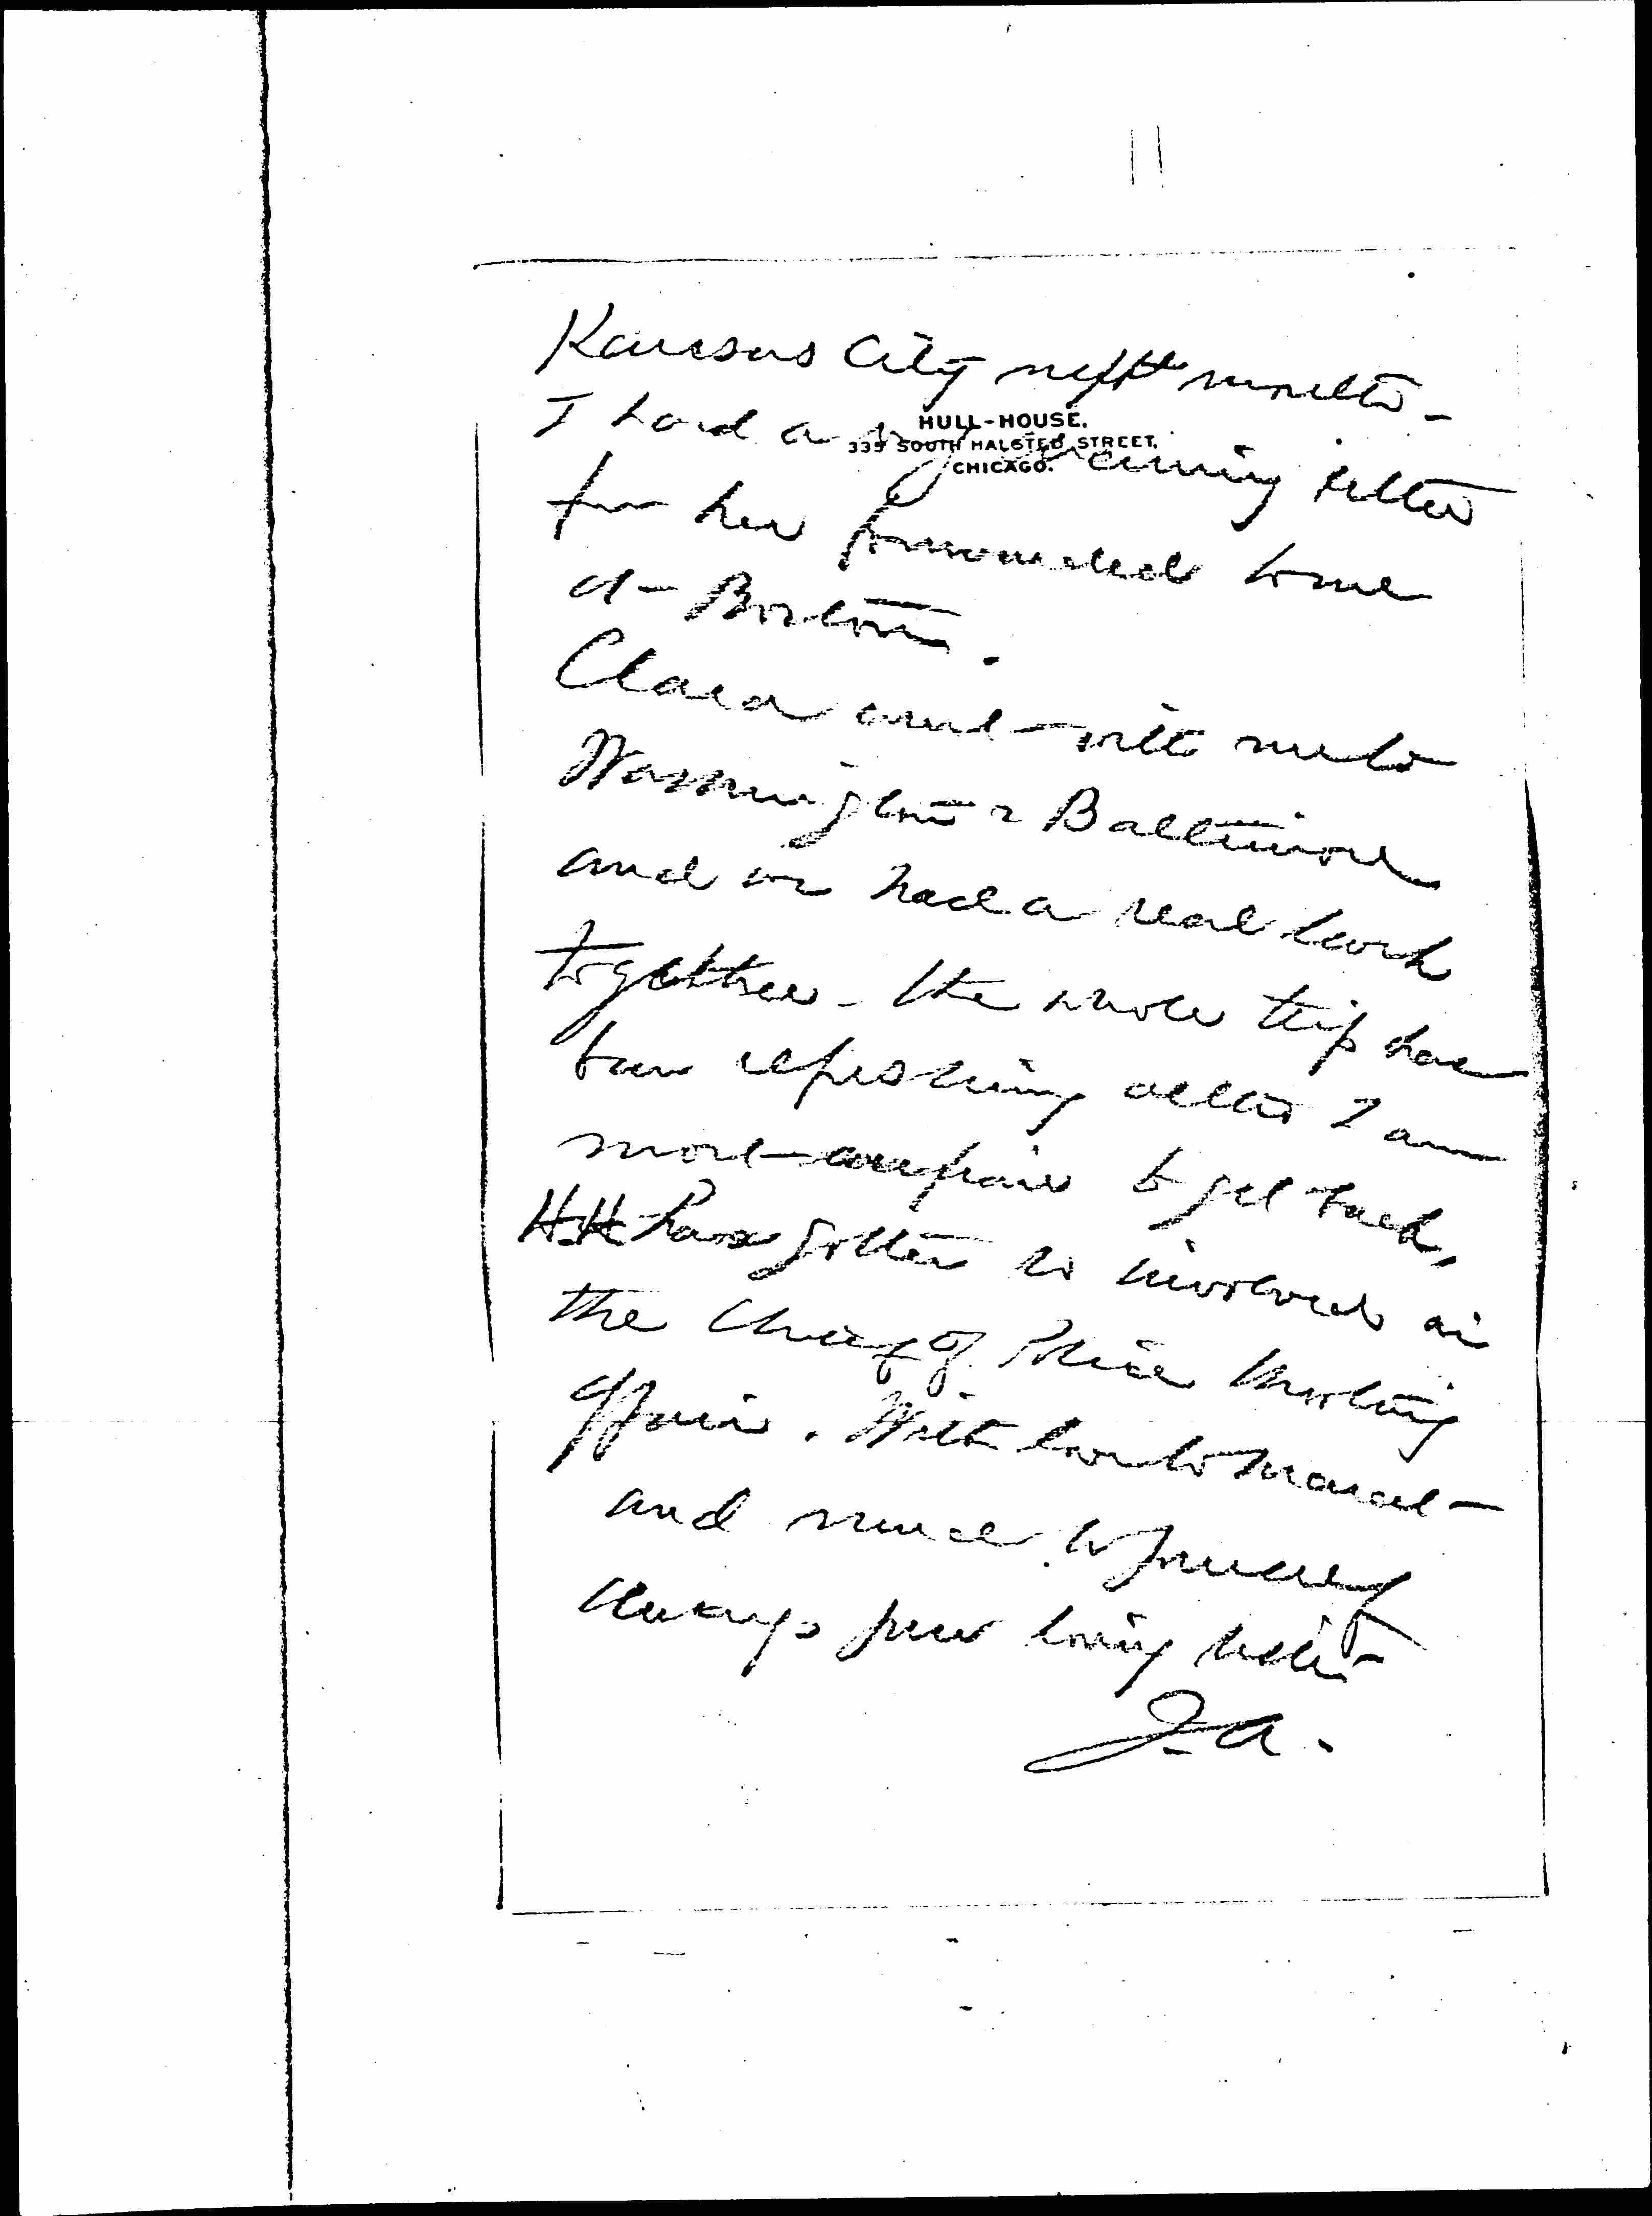 Kansas City next month -
HULL-HOUSE.
335 SOUTH HALSTED STREET,
CHICAGO.
I had a very charming letter
from her forwarded to me
at Boston.
Clara went with me to
Washington & Baltimore
and we had a real lark
together - the whole trip has
been refreshing altho I am
more anxious to get back,
H.H. has gotten so involved in
the Chief of Police shooting
affair. With love to Marcet
and much to yourself
always your loving sister
J.A.